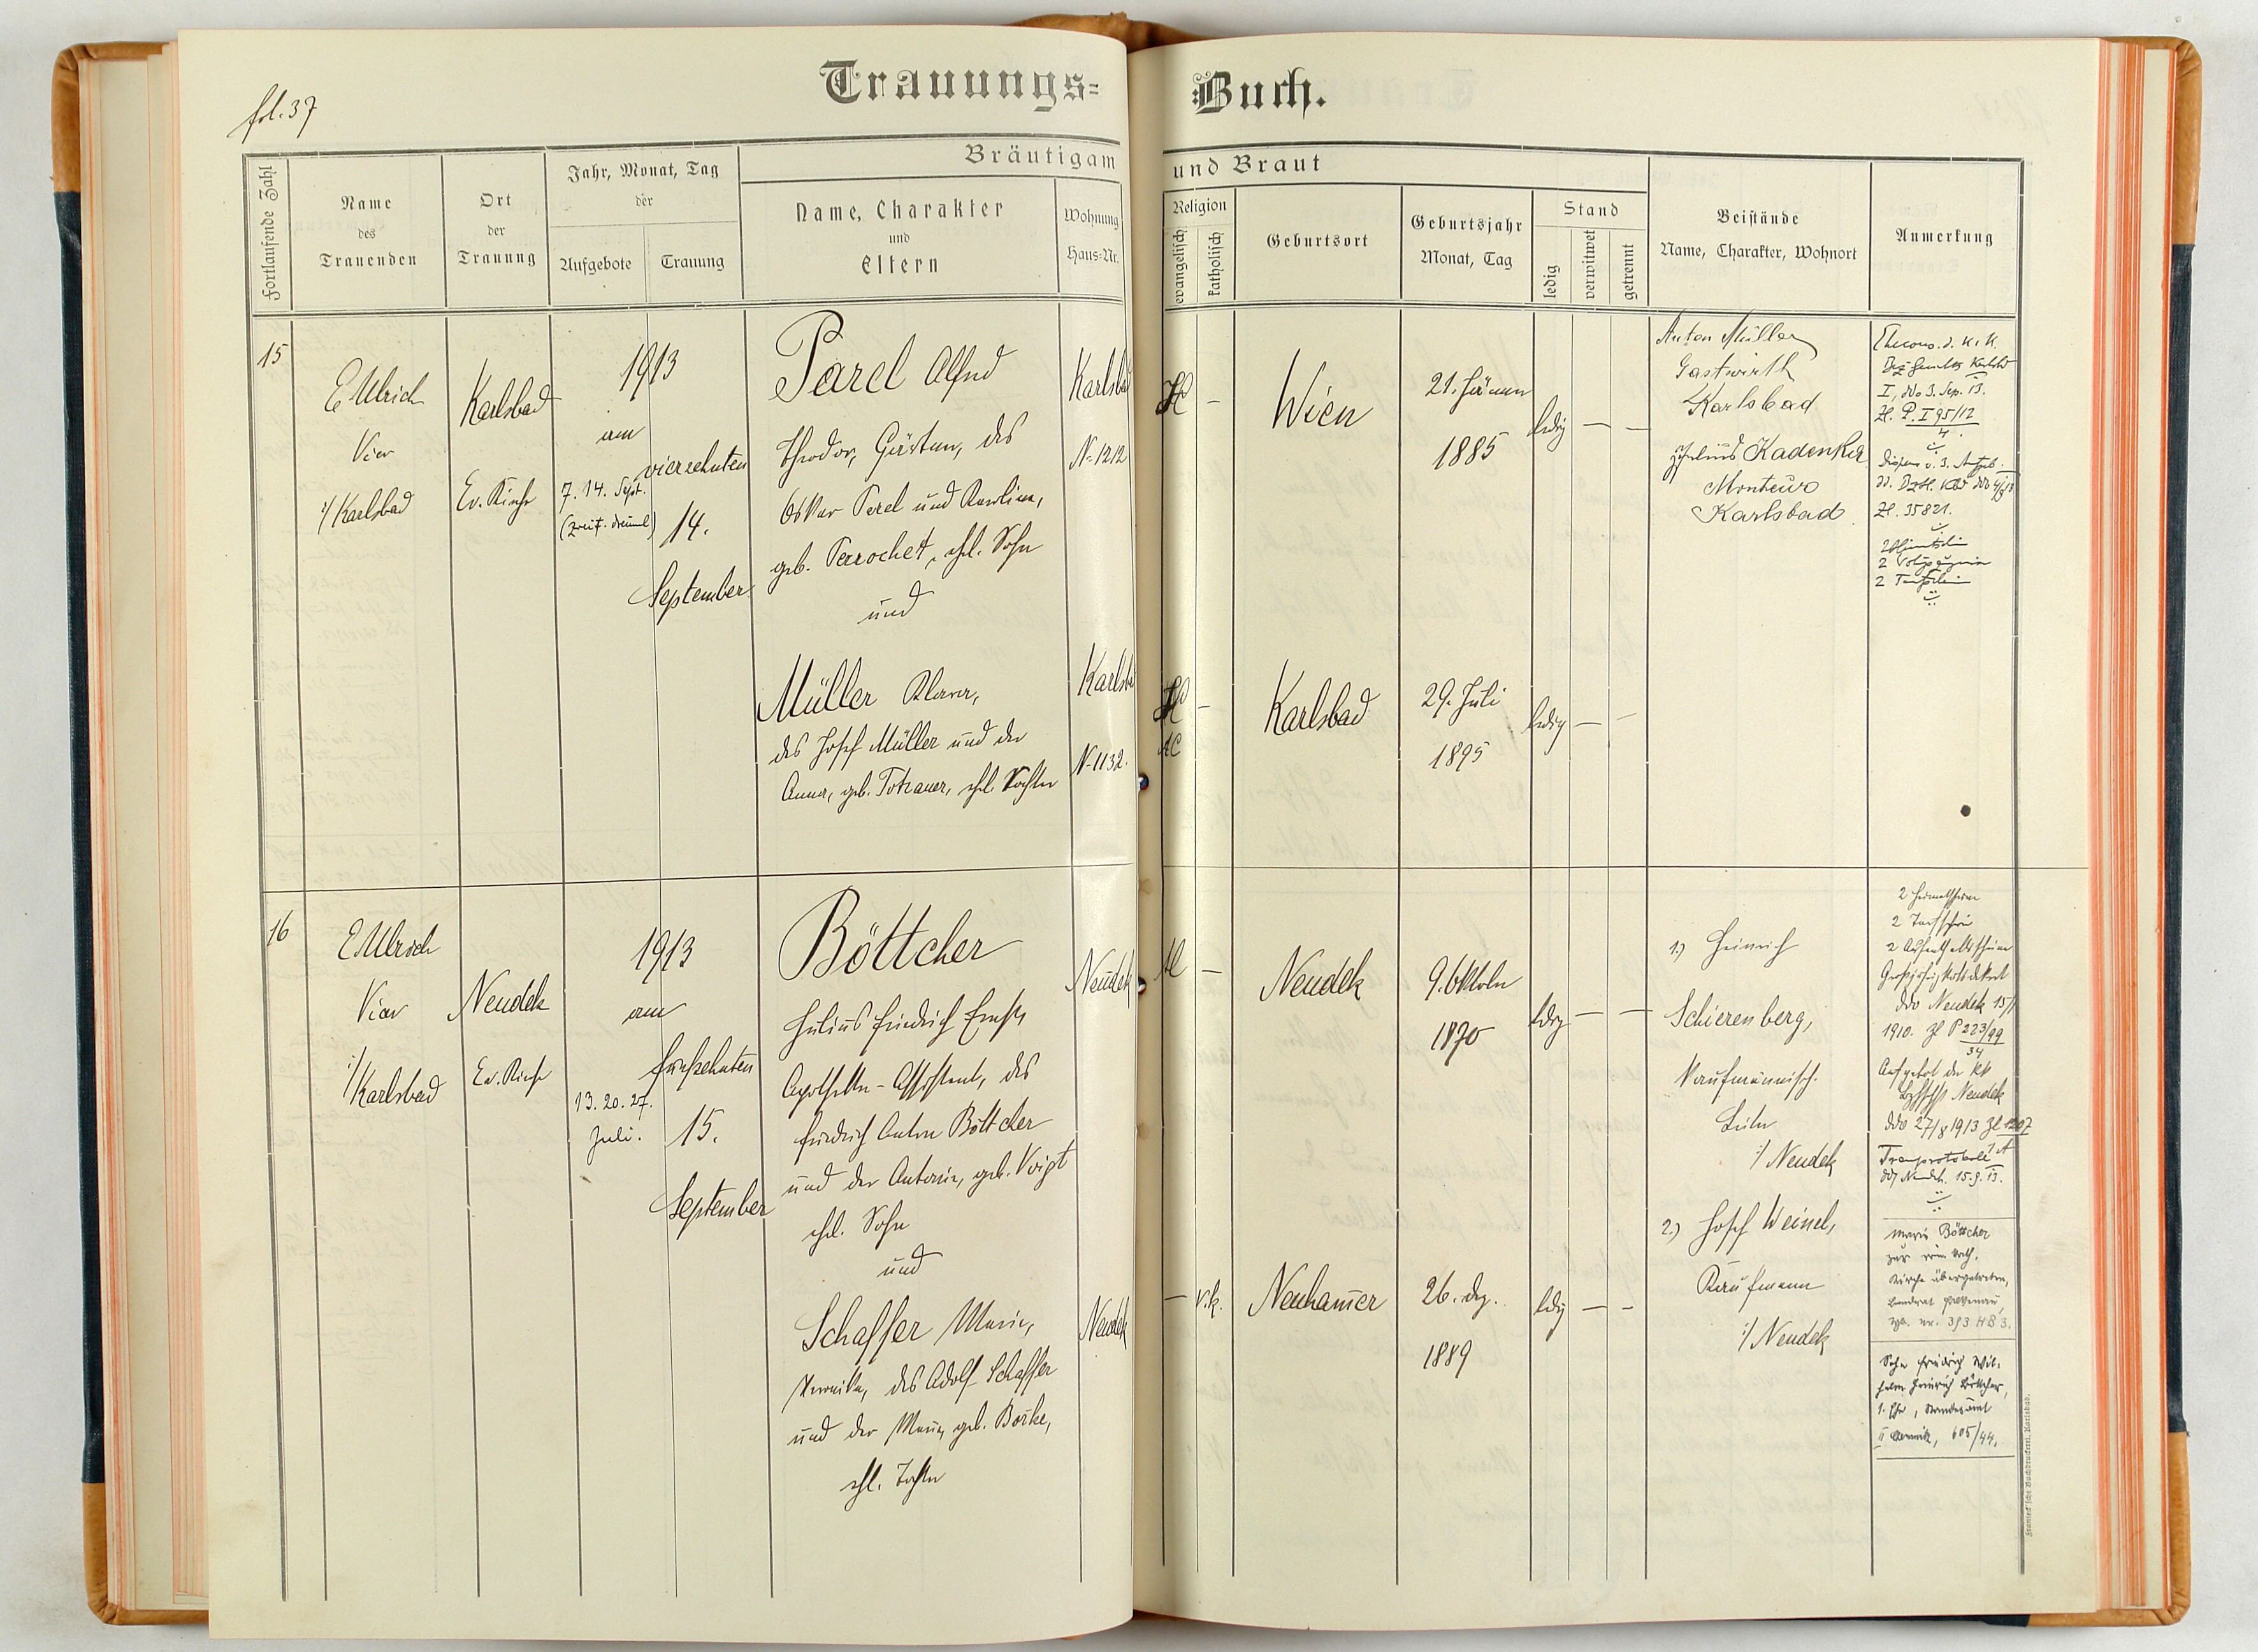 fol. 37
Trauungs=
Buch.
Fortlaufende Zahl
Name
des
Trauenden
Ort
der
Trauung
Jahr, Monat, Tag
der
Aufgebote
Trauung
Bräutigam
und Braut
Name, Charakter
und
Eltern
Wohnung
Haus=Nr.
Religion
evangelisch
katholisch
Geburtsort
Geburtsjahr
Monat, Tag
Stand
ledig
verwitwet
getrennt
Beistände
Name, Charakter, Wohnort
Anmerkung
15
E Ullrich
Karlsbad
Karlsbad
Ev. Kirche
1913
am
vierzehnten
7. 14. Sept.
14.
September
Parel Alfred
Theodor, Gärtner, des
Oskar Parel und
geb. Perrochet, ehl. Sohn
und
Müller Klara,
des Josef Müller und der
Anna, geb. Totzauer, ehl. Tochter
Karlsbad
N. 1212
Karlsbad
N. 1132.
HC
–
Wien
21. Jänner
1885
ledig
– –
AC
–
Karlsbad
29. Juli
1895
ledig
– –
Anton Müller
Gastwirth
Karlsbad
Julius Kadenka
Monteur
Karlsbad
I, ddo 3. Sep. 13.
Zl. P. I 95/12
4.
Zl. 35821.
2
2
2
16
E Ullrich
Karlsbad
Neudek
Ev. Kirche
1913
am
fünfzehnten
13. 20. 27.
Juli.
15.
September
Böttcher
Julius Friedrich Ernst,
Apotheker-Assistent, des
Friedrich Anton Böttcher
und der Antonie, geb. Voigt
ehl. Sohn
und
Schaffer Marie,
Veronika, des Adolf Schaffer
und der Marie, geb.
ehl. Tochter
Neudek
Neudek
AC
–
Neudek
9. Oktober
1870
ledig
– –
– r. k.
Neuhammer
26. Dez.
1889
ledig
– –
1.) Heinrich
Schierenberg,
kaufmännisch.
Leiter
Neudek
2.) Josef Weinel,
Kaufmann
Neudek
2 Heimatscheine
2 Taufscheine
2 Aufenthaltsscheine
ddo Neudek 15/1
1910. Zl P 223/99
34
Aufgebot der kk
Neudek
ddo 27/8 1913 Zl 1207
Neudek 15.9.13.
Marie Böttcher
zur röm. kath.
Kirche übergetreten,
Landrat Falkenau,
Zl. nr. 393 HB 3.
Sohn Friedrich Wil-
helm Heinrich Böttcher,
1. Ehe, Standesamt
II Chemnitz, 605/44.